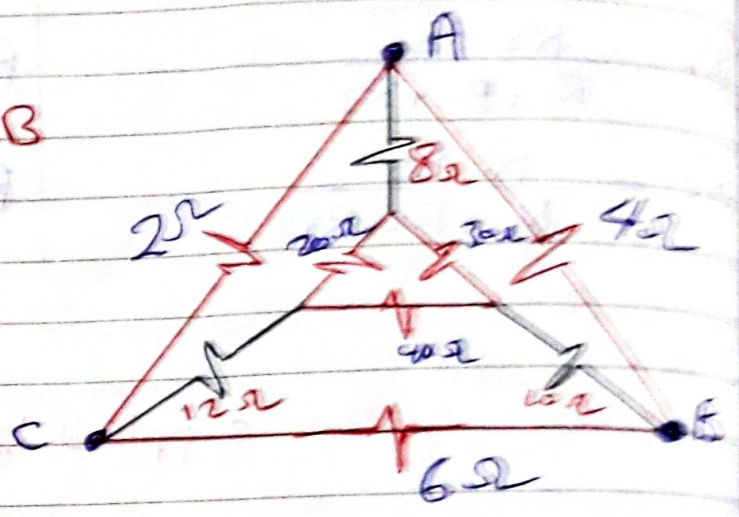 A
B
8Ω
2Ω
20Ω
30Ω
4Ω
40Ω
12Ω
C
6Ω